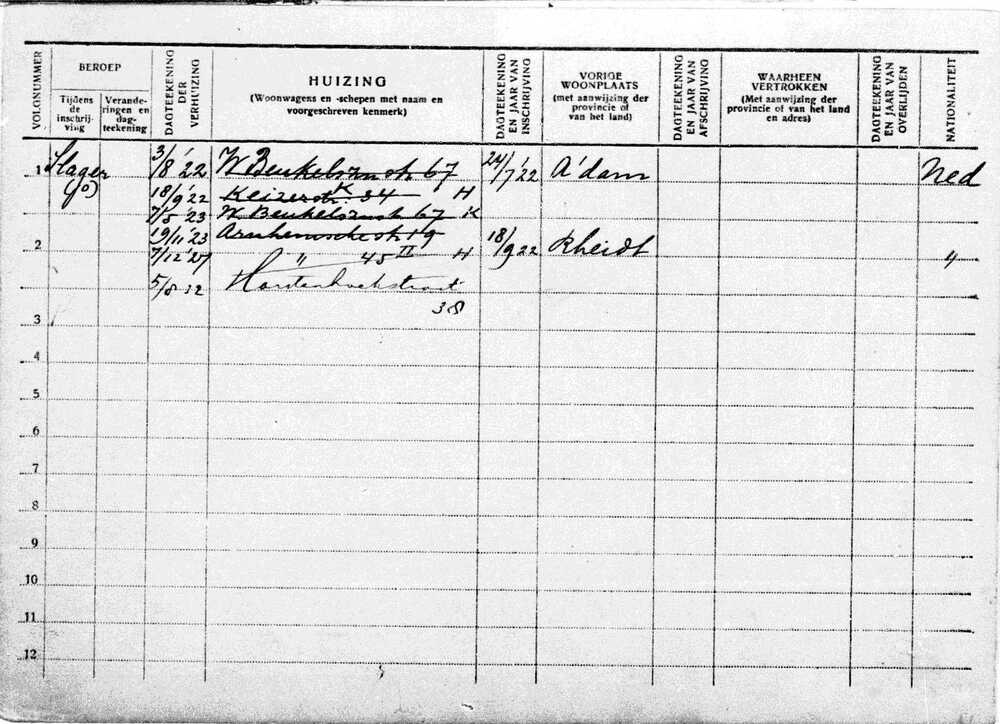 VOLGNUMMER
BEROEP
Tijdens de inschrij- ving
Verande- ringen en dag- teekening
DAGTEEKENING DER VERHUIZING
HUIZING
(Woonwagens en -schepen met naam en
voorgeschreven kenmerk)
DAGTEEKENING EN JAAR VAN INSCHRIJVING
VORIGE WOONPLAATS
(met aanwijzing der
provincie of
van het land)
DAGTEEKENING EN JAAR VAN AFSCHRIJVING
WAARHEEN VERTROKKEN
(Met aanwijzing der
provincie of van het land
en adres)
DAGTEEKENING EN JAAR VAN OVERLIJDEN
NATIONALITEIT
1 Slager 3/8 '22 W Beukelsznstr 67 24/7 '22 A'dam Ned
18/9 '22 Keizerstr. 34 H
7/5 '23 W. Beukelsznstr 67 K
19/11 '23 Arnhemschestr 19
2 7/12 '27 " 45 II H 18/9 22 Rheidt "
5/8 12
38
3
4
5
6
7
8
9
10
11
12